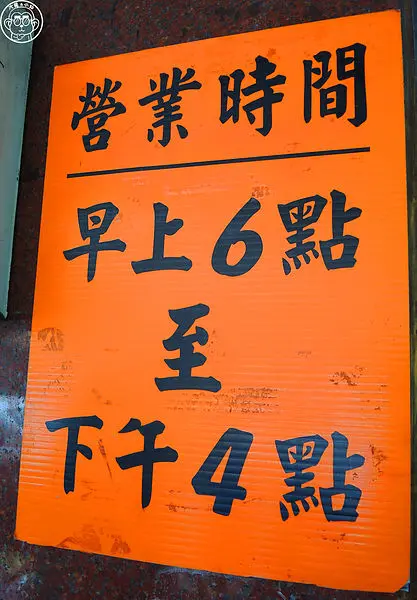 營業時間
早上6點
至
下午4點